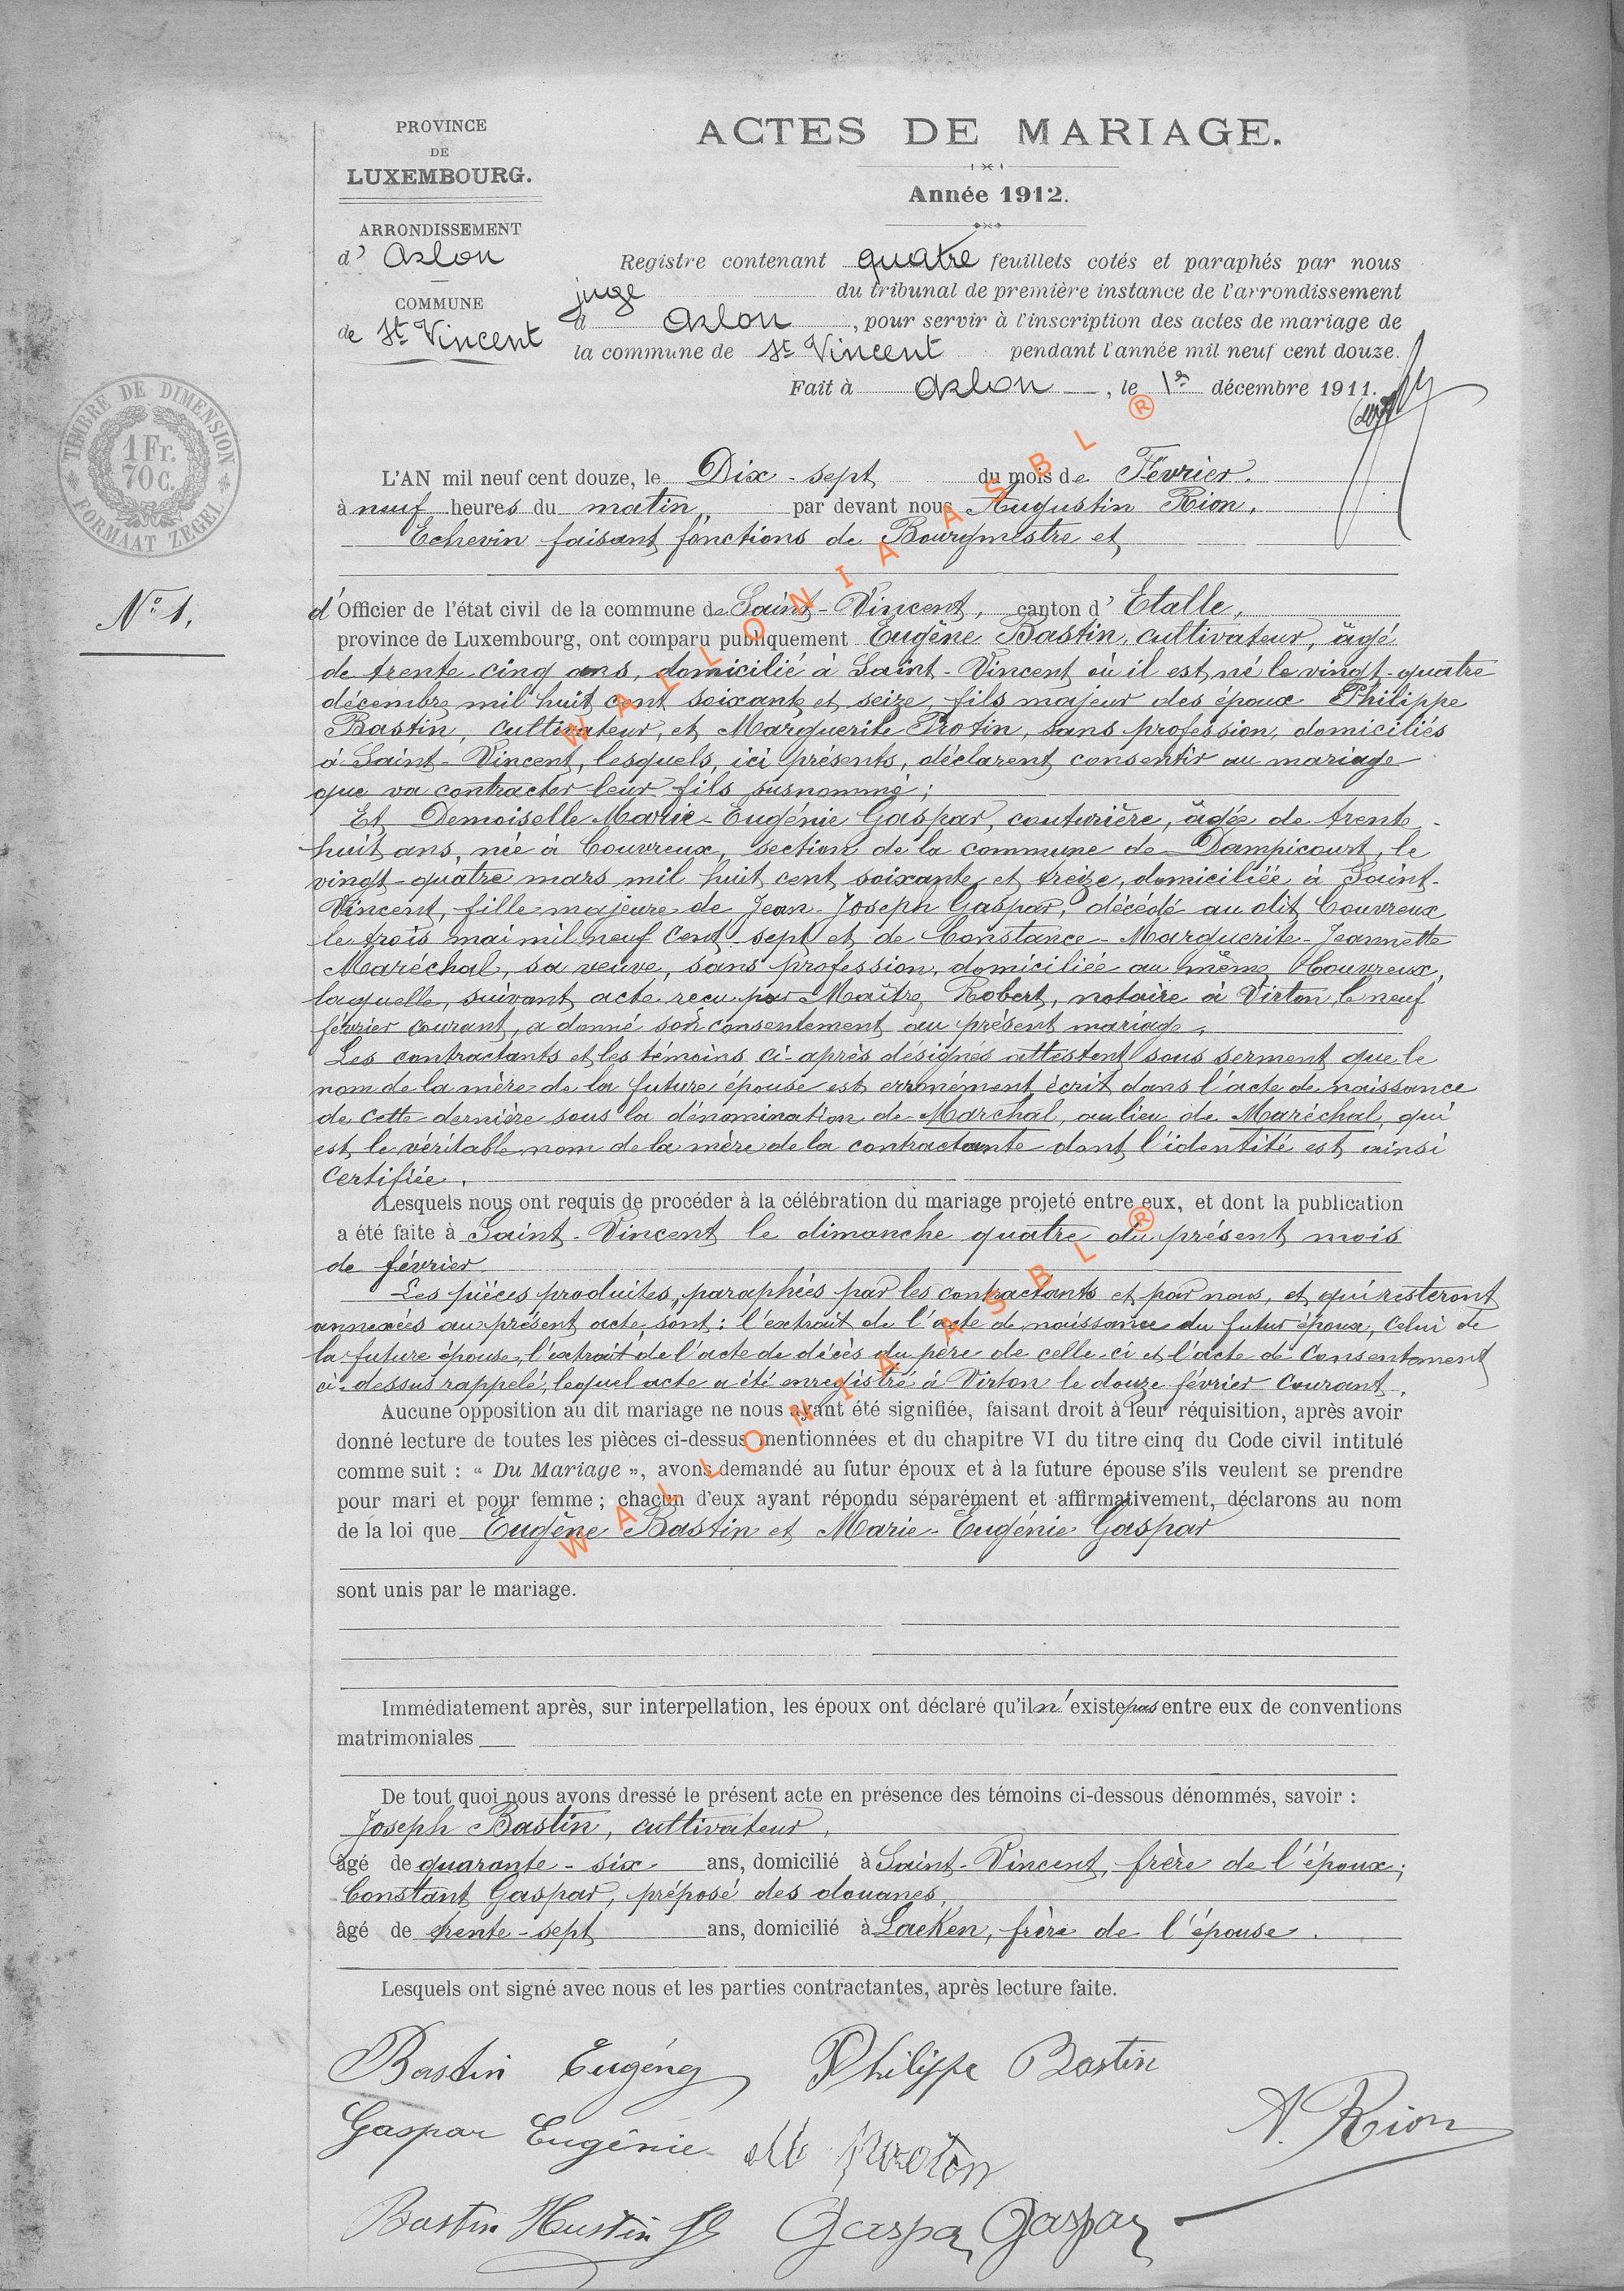 PROVINCE
DE
LUXEMBOURG.
ARRONDISSEMENT
d' Arlon
COMMUNE
de St Vincent
TIMBRE DE DIMENSION
1 Fr.
70 c.
FORMAAT ZEGEL
ACTES DE MARIAGE.
Année 1912.
Registre contenant quatre feuillets cotés et paraphés par nous
juge du tribunal de première instance de l'arrondissement
d Arlon, pour servir à l'inscription des actes de mariage de
la commune de St Vincent pendant l'année mil neuf cent douze.
Fait à Arlon, le 1er décembre 1911.
N° 1.
L'AN mil neuf cent douze, le Dix-sept du mois de Février.
à neuf heures du matin, par devant nous Augustin Rion,
Echevin faisant fonctions de Bourgmestre et
d'Officier de l'état civil de la commune de Saint-Vincent, canton d' Etalle,
province de Luxembourg, ont comparu publiquement Eugène Bastin, cultivateur, âgé
de trente-cinq ans, domicilié à Saint-Vincent où il est né le vingt-quatre
décembre mil huit cent soixante et seize, fils majeur des époux Philippe
Bastin, cultivateur, et Marguerite Protin, sans profession, domiciliés
à Saint-Vincent, lesquels, ici présents, déclarent consentir au mariage
que va contracter leur fils susnommé;
Et Demoiselle Marie-Eugénie Gaspar, couturière, âgée de trente-
huit ans, née à Couvreux, section de la commune de Dampicourt, le
vingt-quatre mars mil huit cent soixante et treize, domiciliée à Saint-
Vincent, fille majeure de Jean-Joseph Gaspar, décédé au dit Couvreux
le trois mai mil neuf cent sept et de Constance-Marguerite-Jeannette
Maréchal, sa veuve, sans profession, domiciliée au même Couvreux,
laquelle, suivant acte reçu par Maître Robert, notaire à Virton, le neuf
février courant, a donné son consentement au présent mariage.
Les contractants et les témoins ci-après désignés attestent sous serment que le
nom de la mère de la future épouse est erronément écrit dans l'acte de naissance
de cette dernière sous la dénomination de Marchal, au lieu de Maréchal, qui
est le véritable nom de la mère de la contractante dont l'identité est ainsi
certifiée.
Lesquels nous ont requis de procéder à la célébration du mariage projeté entre eux, et dont la publication
a été faite à Saint-Vincent le dimanche quatre du présent mois
de février
Les pièces produites, paraphées par les contractants et par nous, et qui resteront
annexées au présent acte sont: l'extrait de l'acte de naissance du futur époux, celui de
la future épouse, l'extrait de l'acte de décès du père de celle-ci et l'acte de consentement
ci-dessus rappelé, lequel acte a été enregistré à Virton le douze février courant.
Aucune opposition au dit mariage ne nous ayant été signifiée, faisant droit à leur réquisition, après avoir
donné lecture de toutes les pièces ci-dessus mentionnées et du chapitre VI du titre cinq du Code civil intitulé
comme suit : « Du Mariage », avons demandé au futur époux et à la future épouse s'ils veulent se prendre
pour mari et pour femme ; chacun d'eux ayant répondu séparément et affirmativement, déclarons au nom
de la loi que Eugène Bastin et Marie-Eugénie Gaspar
sont unis par le mariage.
Immédiatement après, sur interpellation, les époux ont déclaré qu'il n'existe pas entre eux de conventions
matrimoniales
De tout quoi nous avons dressé le présent acte en présence des témoins ci-dessous dénommés, savoir :
Joseph Bastin, cultivateur,
âgé de quarante-six ans, domicilié à Saint-Vincent, frère de l'époux;
Constant Gaspar, préposé des douanes,
âgé de trente-sept ans, domicilié à Laeken, frère de l'épouse.
Lesquels ont signé avec nous et les parties contractantes, après lecture faite.
Bastin Eugène Philippe Bastin
Gaspar Eugénie M Protin A. Rion
Bastin Hustin Gaspar Gaspar
WALLONIA ASBL ®
WALLONIA ASBL ®